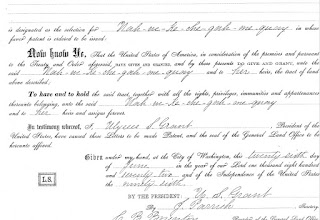 is designated as the selection for Nah-we-ke-che-gwah-me-quay in whose
favor patent is ordered to be issued.
Now know Ye, That the United States of America, in consideration of the premises and pursuant
to the Treaty and Order aforesaid, HAVE GIVEN AND GRANTED, and by these presents DO GIVE AND GRANT, unto the
said and to her heirs, the tract of land
above described.
To have and to hold the said tract, together with all the rights, privileges, immunities and appurtenances
thereunto belonging, unto the said
and to her heirs and assigns forever.
In testimony whereof, I, Ulysses S. Grant, President of the
United States, have caused these Letters to be made Patent, and the seal of the General Land Office to be
hereunto affixed.
Given under my hand, at the City of Washington, the twenty sixth day
of June in the year of our Lord one thousand eight hundred
and seventy two and of the Independence of the United States
the ninety sixth.
L.S.
BY THE PRESIDENT: U. S. Grant
By J. Parrish Secretary